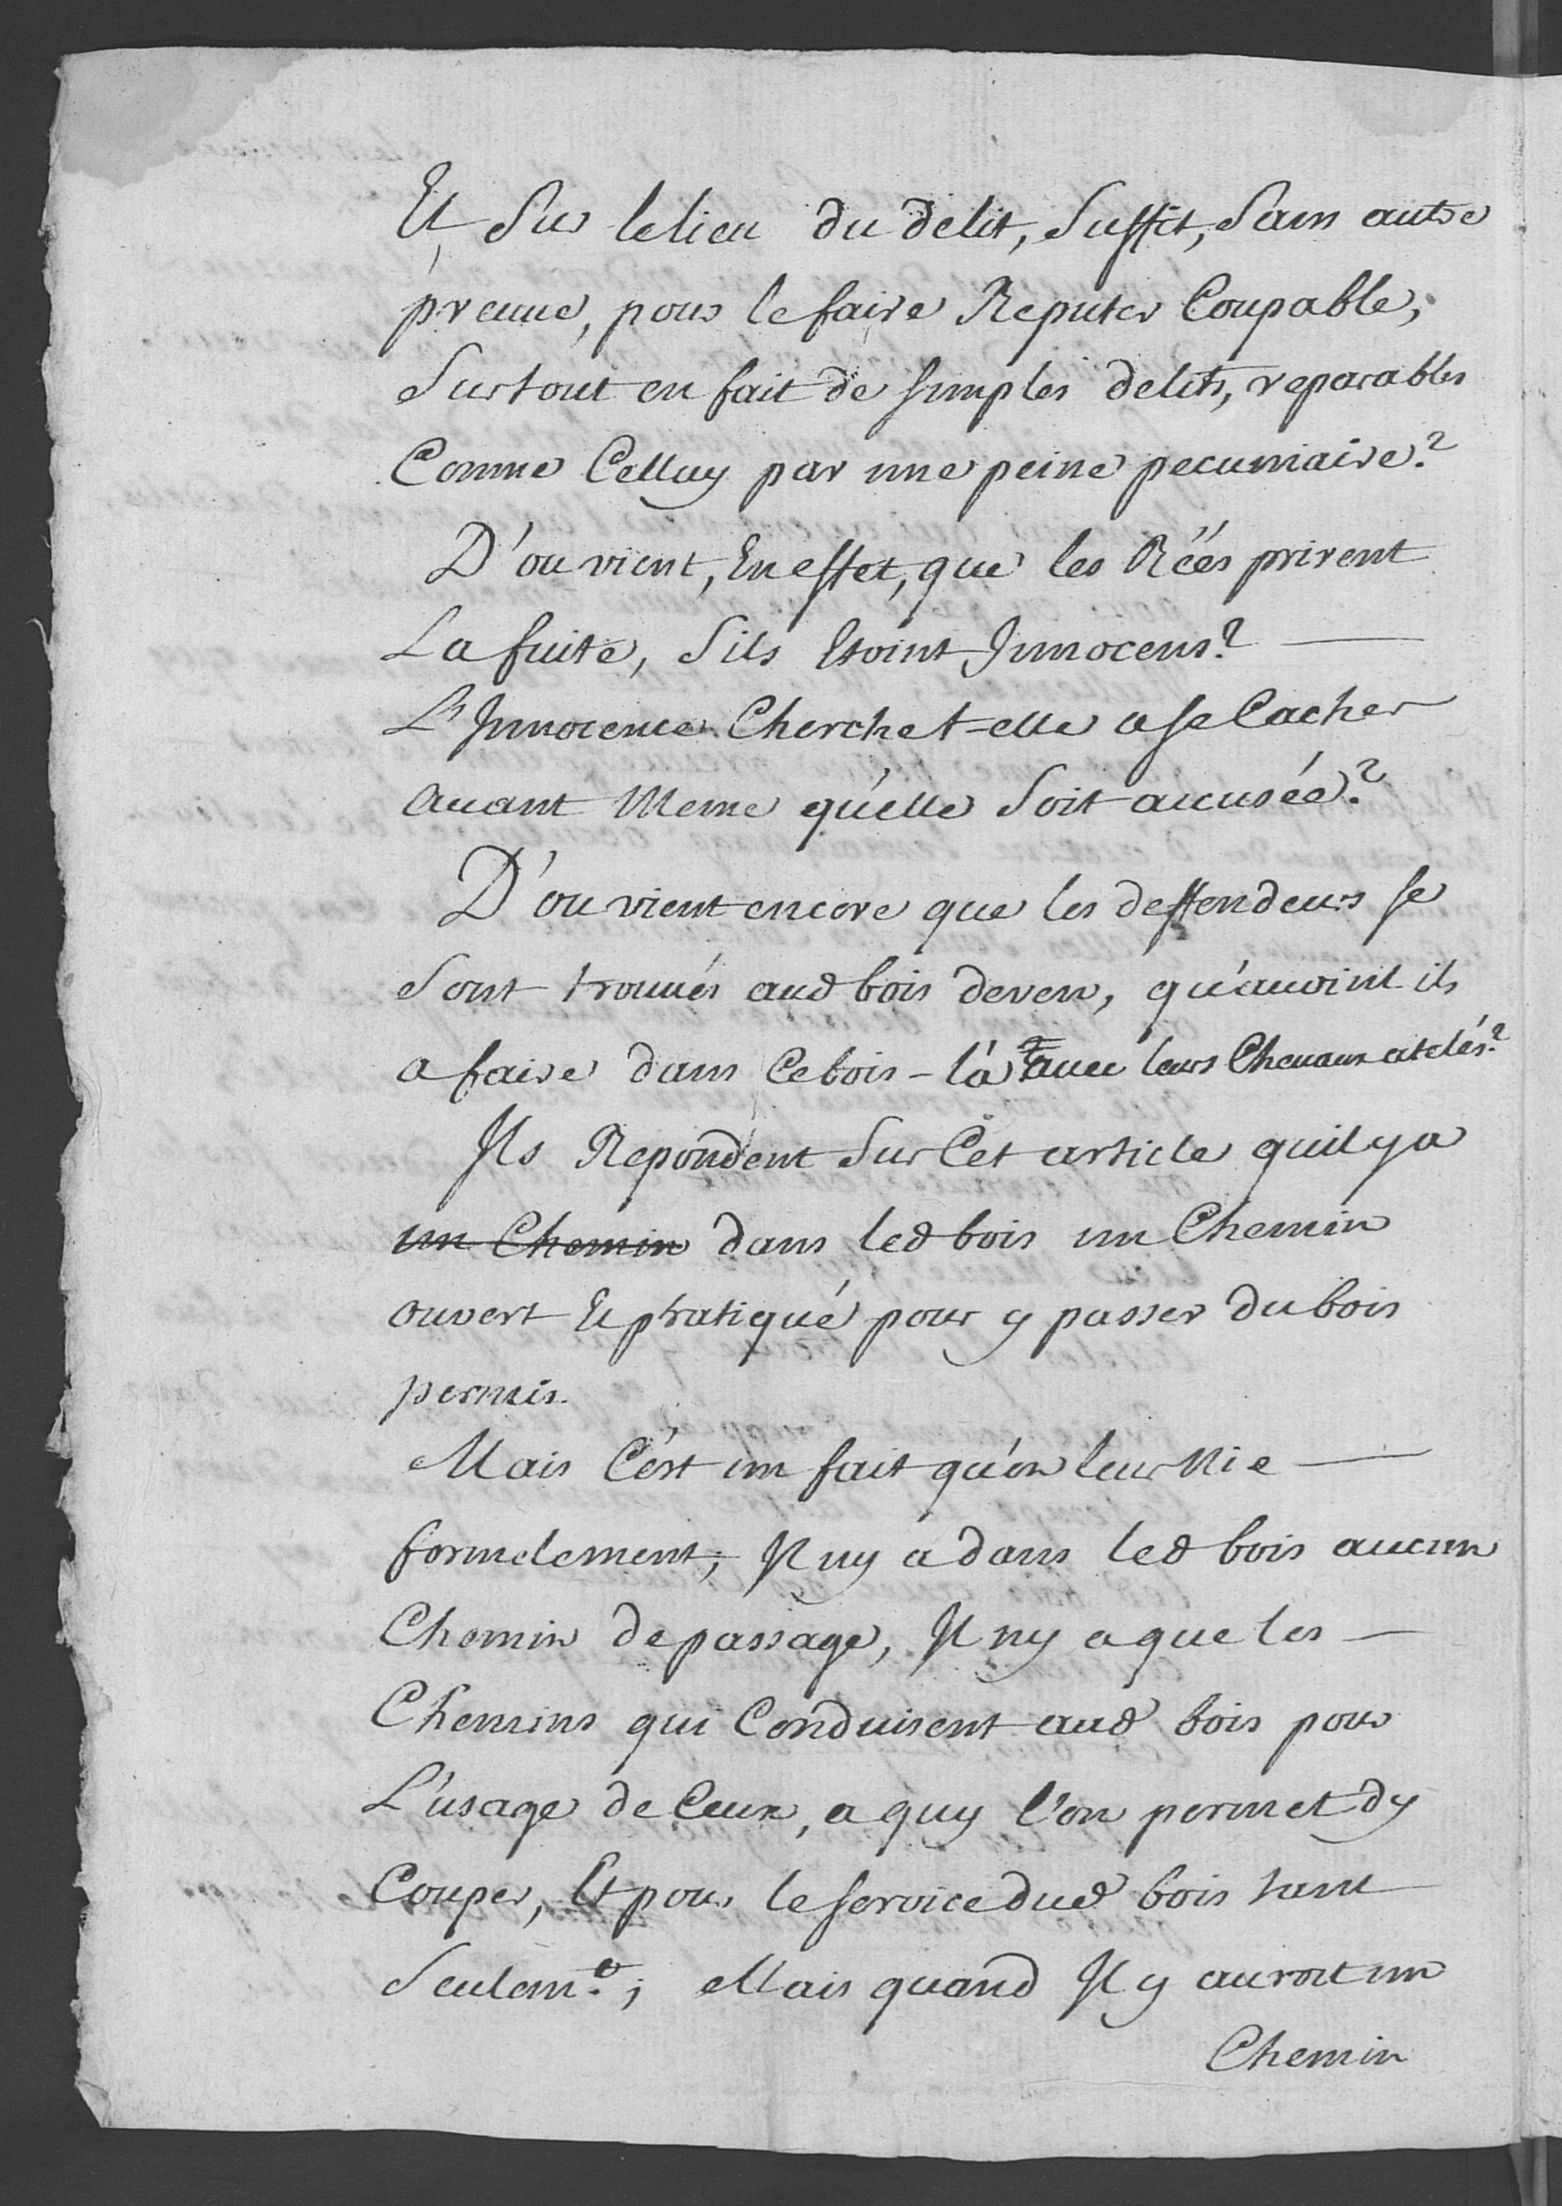 Et Sur le lieu du delit, Suffit, Sans autre
preuue, pour le faire Reputer Coupable,
Surtout en fait de simples delits, reparables
Comme Celluy par une peine pecuniaire?
D'ou vient, En effet, que les Réés prirent
La fuite, S'ils Etoint Innocens?
L'Innocence Cherchet-elle a se Cacher
auant Meme qu'elle Soit accusée?
D'ou vient encore que les deffendeurs se
Sont trouués aud bois deven, qu'auoint ils
a faire dans Ce bois-là auec leurs Cheuaux atelés?
Ils Repondent Sur Cet article quil y a
un Chemin dans led bois un Chemin
ouvert Et pratiqué pour y passer du bois
permis.
Mais C'est un fait qu'on leur Nie
formelement; Il ny a dans led bois aucun
Chemin de passage, Il ny a que les
Chemins qui Conduisent aud bois pour
L'usage de Ceux, a quy l'on permet dy
Couper, Et pour le service dud bois tant
Seulemt; Mais quand Il y auroit un
Chemin